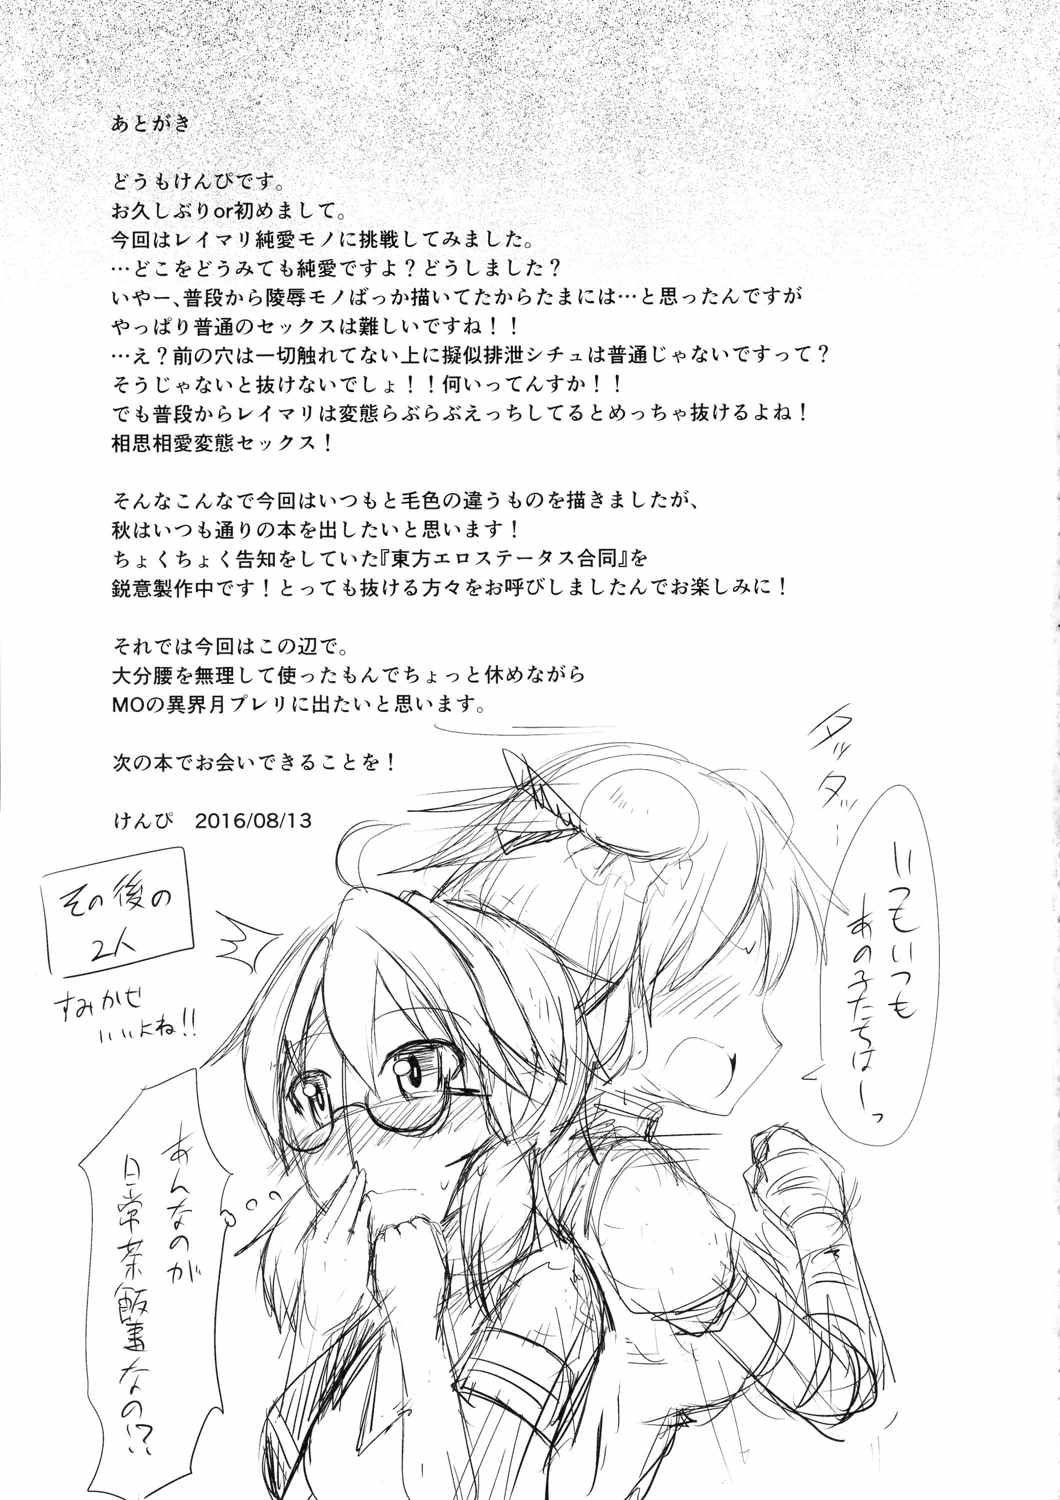 あとがき
どうもけんぴです。
お久しぶりor初めまして。
今回はレイマリ純愛モノに挑戦してみました。
…どこをどうみても純愛ですよ？どうしました？
いやー、普段から陵辱モノばっか描いてたからたまには…と思ったんですが
やっぱり普通のセックスは難しいですね！！
…え？前の穴は一切触れてない上に擬似排泄シチュは普通じゃないですって？
そうじゃないと抜けないでしょ！！何いってんすか！！
でも普段からレイマリは変態らぶらぶえっちしてるとめっちゃ抜けるよね！
相思相愛変態セックス！
そんなこんなで今回はいつもと毛色の違うものを描きましたが、
秋はいつも通りの本を出したいと思います！
ちょくちょく告知をしていた『東方エロステータス合同』を
鋭意製作中です！とっても抜ける方々をお呼びしましたんでお楽しみに！
それでは今回はこの辺で。
大分腰を無理して使ったもんでちょっと休めながら
MOの異界月プレリに出たいと思います。
次の本でお会いできることを！
けんぴ　2016/08/13
タッ
タッ…
いつもいつも
あの子たちはーっ
その後の
2人
すみかせ
いいよね!!
あんなのが
日常茶飯事なの!?